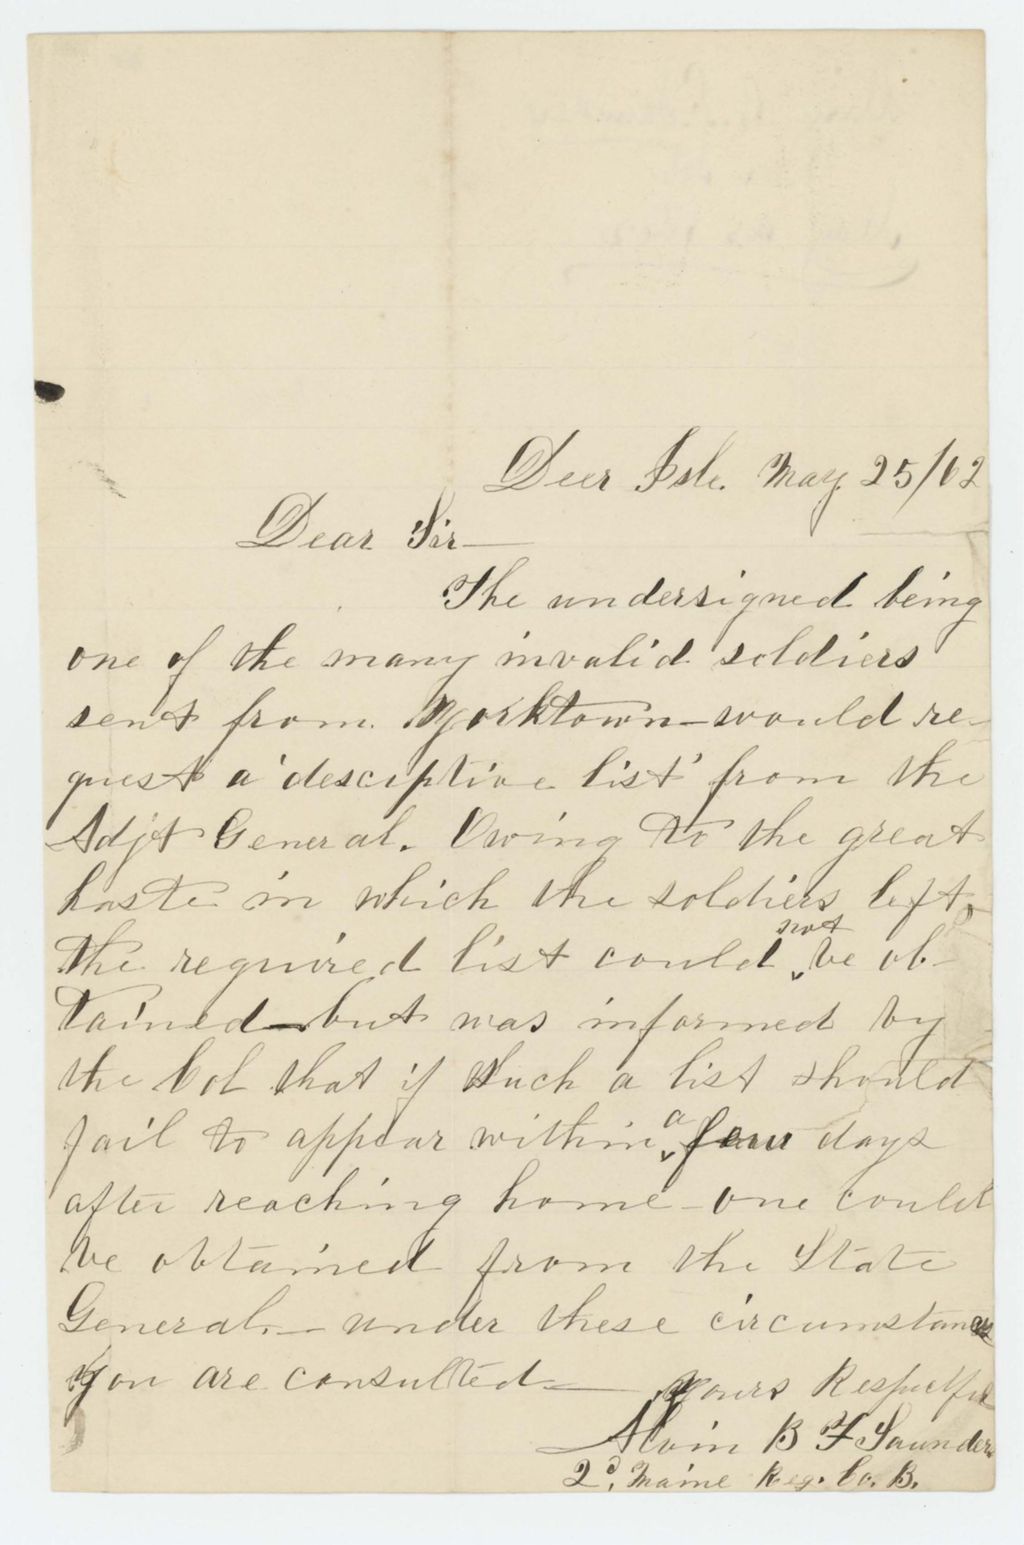 Deer Isle. May. 25/62
Dear Sir—
The undersigned being
one of the many invalid soldiers
sent from Yorktown—would re-
quest a 'desciptive list' from the
Adjt General. Owing to the great
haste in which the soldiers left,
the required list could not be ob-
tained—but was informed by
the Col that if such a list should
fail to appear within a few days
after reaching home—one could
be obtained from the State
General.—under these circumstances
you are consulted—
Yours Respectful
Alvin B F Saunders
2d. Maine Reg. Co. B.